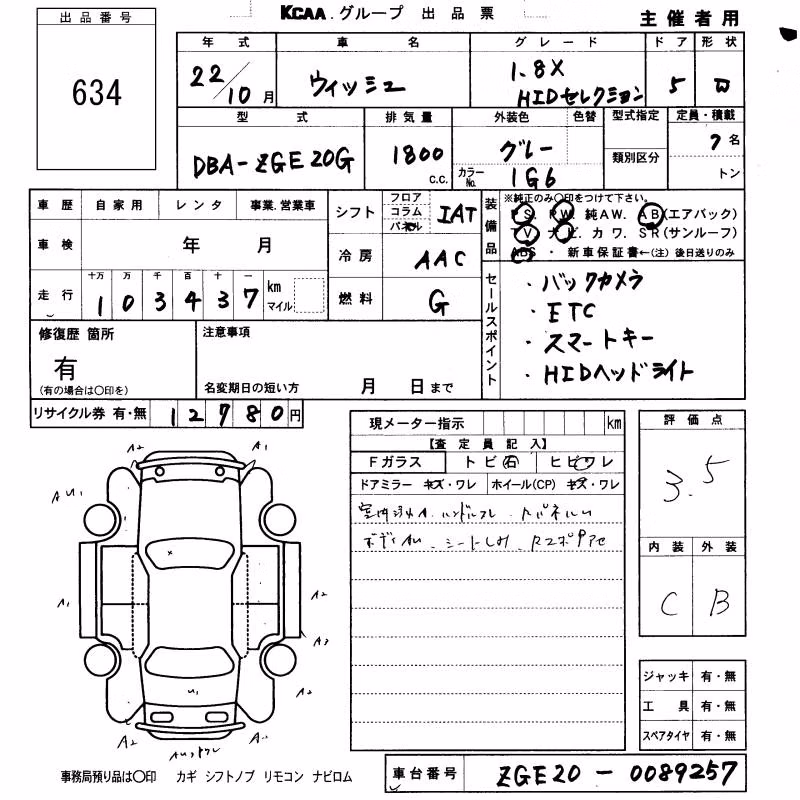 出品番号
634
KCAA.グループ 出品票
主催者用
年式 車名 グレード ドア 形状
22/10月 ウィッシュ 1.8X HIDセレクション 5 W
型式 排気量 外装色 色替 型式指定 定員・積載
DBA-ZGE20G 1800 c.c. グレー 7名
カラーNo. 1G6 類別区分 トン
車歴 自家用 レンタ 事業.営業車
車検 年 月
走行 十万 万 千 百 十 一
103437 km マイル
シフト フロア コラム パネル IAT
冷房 AAC
燃料 G
装備品
※純正のみ○印をつけて下さい。
PS. PW. 純AW. AB(エアバック)
TV. ナビ. カワ. SR(サンルーフ)
ABS ・ 新車保証書←(注)後日送りのみ
セールスポイント
・バックカメラ
・ETC
・スマートキー
・HIDヘッドライト
修復歴 箇所
有
(有の場合は○印を)
注意事項
名変期日の短い方 月 日まで
リサイクル券 有・無 12780円
現メーター指示 km
【査定員記入】
Fガラス トビ石 ヒビワレ
ドアミラー キズ・ワレ ホイール(CP) キズ・ワレ
評価点
3.5
内装 外装
C B
ジャッキ 有・無
工具 有・無
スペアタイヤ 有・無
A2 A1
AU1
A1 A2
A3
U1
A2
事務局預り品は○印 カギ シフトノブ リモコン ナビロム
車台番号 ZGE20-0089257